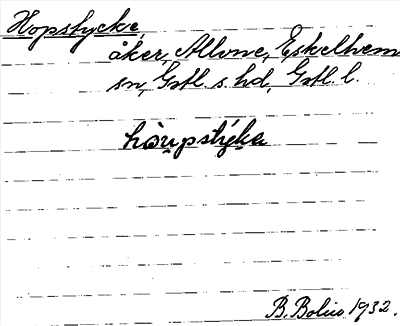 Hopstycke,
åker, Allvne, Eskelhem
sn, Gotl. s. hd, Gotl. l.
hòu̯pstýka
B. Bolin 1932.